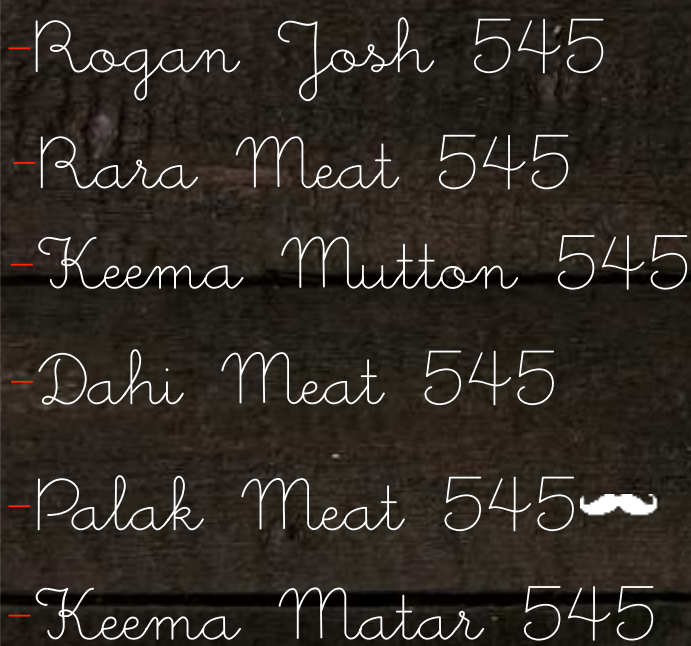 -Rogan Josh 545
-Rara Meat 545
-Keema Mutton 545
-Dahi Meat 545
-Palak Meat 545
-Keema Matar 545